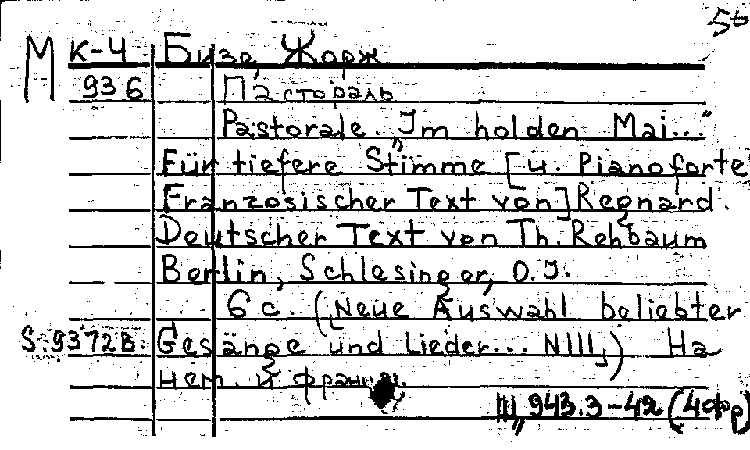 56
М К-4 Бизе, Жорж
936 Пастораль
Pastorale. „Im holden Mai..."
Für tiefere Stimme [u. Pianoforte
Französischer Text von] Regnard.
Deutscher Text von Th. Rehbaum
Berlin, Schlesinger, o.J.
6 с. (Neue Auswahl beliebter
S.9372B. Gesänge und Lieder... N111,) На
нем. и франц. яз.
III, 943.3-42 (4фр)